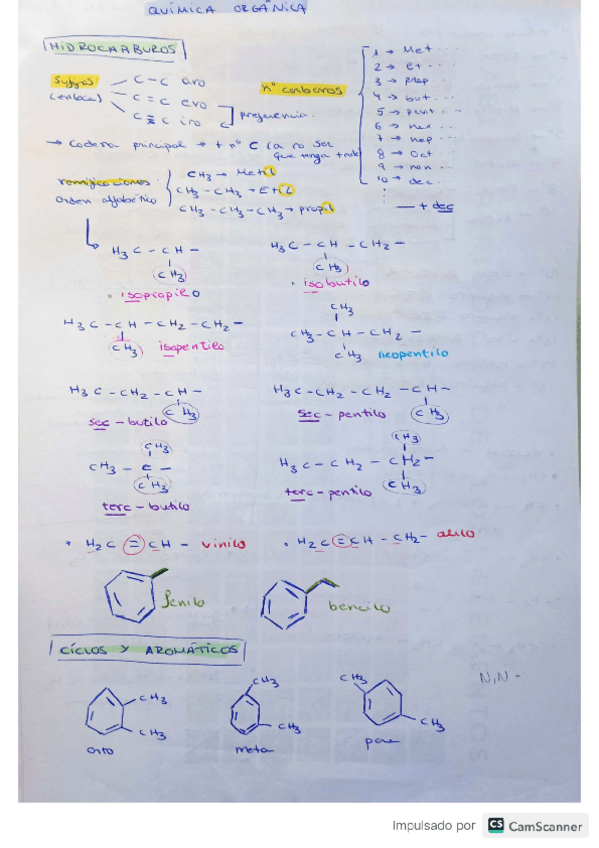 QUÍMICA ORGÁNICA
HIDROCARBUROS
Sufijos (enlace)
C - C ano
C = C eno
C ≡ C ino
preferencia.
nº carbonos
1 → Met...
2 → et...
3 → prop...
4 → but...
5 → pent...
6 → hex...
7 → hep...
8 → oct...
9 → non...
10 → dec...
— + dec
→ Cadena principal → + nº C (a no ser
que tenga
ramificaciones:
orden alfabético
CH3 → Metil
CH3 - CH3 → Etil
CH3 - CH3 - CH3 → propil
H3C - CH -
CH3
isopropilo
H3C - CH - CH2 -
CH3
isobutilo
H3C - CH - CH2 - CH2 -
CH3 isopentilo
CH3
CH3 - CH - CH2 -
CH3 neopentilo
H3C - CH2 - CH -
CH3
sec - butilo
H3C - CH2 - CH2 - CH -
CH3
sec - pentilo
CH3
CH3 - C -
CH3
terc - butilo
CH3
H3C - CH2 - CH2 -
CH3
terc - pentilo
H2C = CH - vinilo
H2C = CH - CH2 - alilo
fenilo
bencilo
CICLOS Y AROMÁTICOS
N,N -
CH3
CH3
orto
CH3
CH3
meta
CH3
CH3
para
Impulsado por CS CamScanner